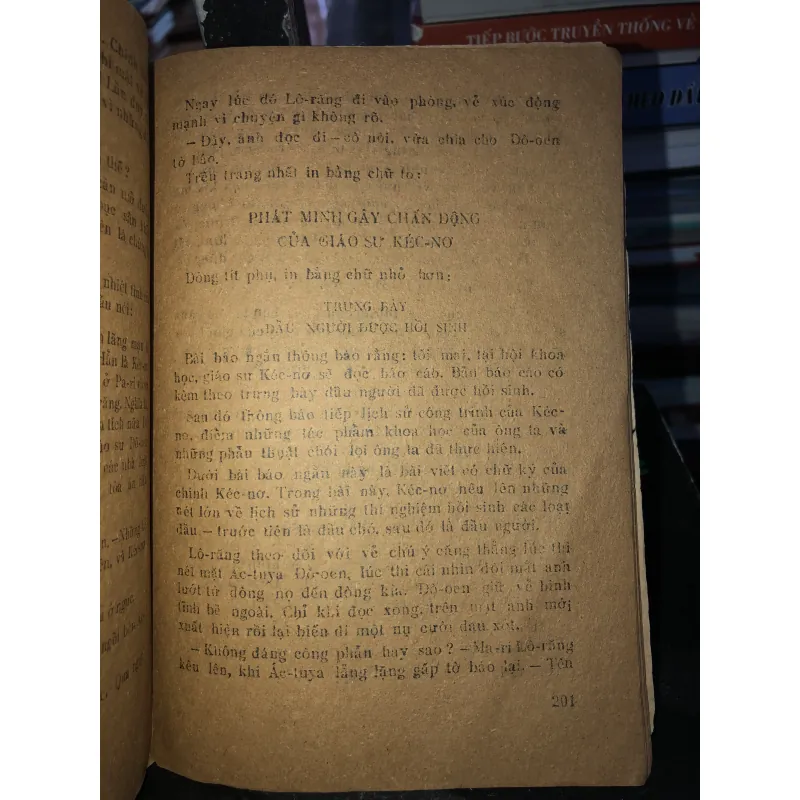 TIẾP BƯỚC TRUYỀN THỐNG VẺ
Ngay lúc đó Lô-răng đi vào phòng, vẻ xúc động
mạnh vì chuyện gì không rõ.
– Đây, anh đọc đi – cô nói, vừa chìa cho Đô-oen
tờ báo.
Trên trang nhất in bằng chữ to:
PHÁT MINH GÂY CHẤN ĐỘNG
CỦA GIÁO SƯ KÉC-NƠ
Dòng tít phụ, in bằng chữ nhỏ hơn:
TRƯNG BÀY
ĐẦU NGƯỜI ĐƯỢC HỒI SINH
Bài báo ngắn thông báo rằng: tối mai, tại hội khoa
học, giáo sư Kéc-nơ sẽ đọc báo cáo. Bản báo cáo có
kèm theo trưng bày đầu người đã được hồi sinh.
Sau đó thông báo tiếp lịch sử công trình của Kéc-
nơ, điểm những tác phẩm khoa học của ông ta và
những phẫu thuật chói lọi ông ta đã thực hiện.
Dưới bài báo ngắn này là bài viết có chữ ký của
chính Kéc-nơ. Trong bài này, Kéc-nơ nêu lên những
nét lớn về lịch sử những thí nghiệm hồi sinh các loại
đầu – trước tiên là đầu chó, sau đó là đầu người.
Lô-răng theo dõi với vẻ chú ý căng thẳng lúc thì
nét mặt Ác-tuya Đô-oen, lúc thì cái nhìn đôi mắt anh
lướt từ dòng nọ đến dòng kia. Đô-oen giữ vẻ bình
tĩnh bề ngoài. Chỉ khi đọc xong, trên mặt anh mới
xuất hiện rồi lại biến đi một nụ cười đau xót.
– Không đáng công phẫn hay sao? – Ma-ri Lô-răng
kêu lên, khi Ác-tuya lẳng lặng gấp tờ báo lại. – Tên
201